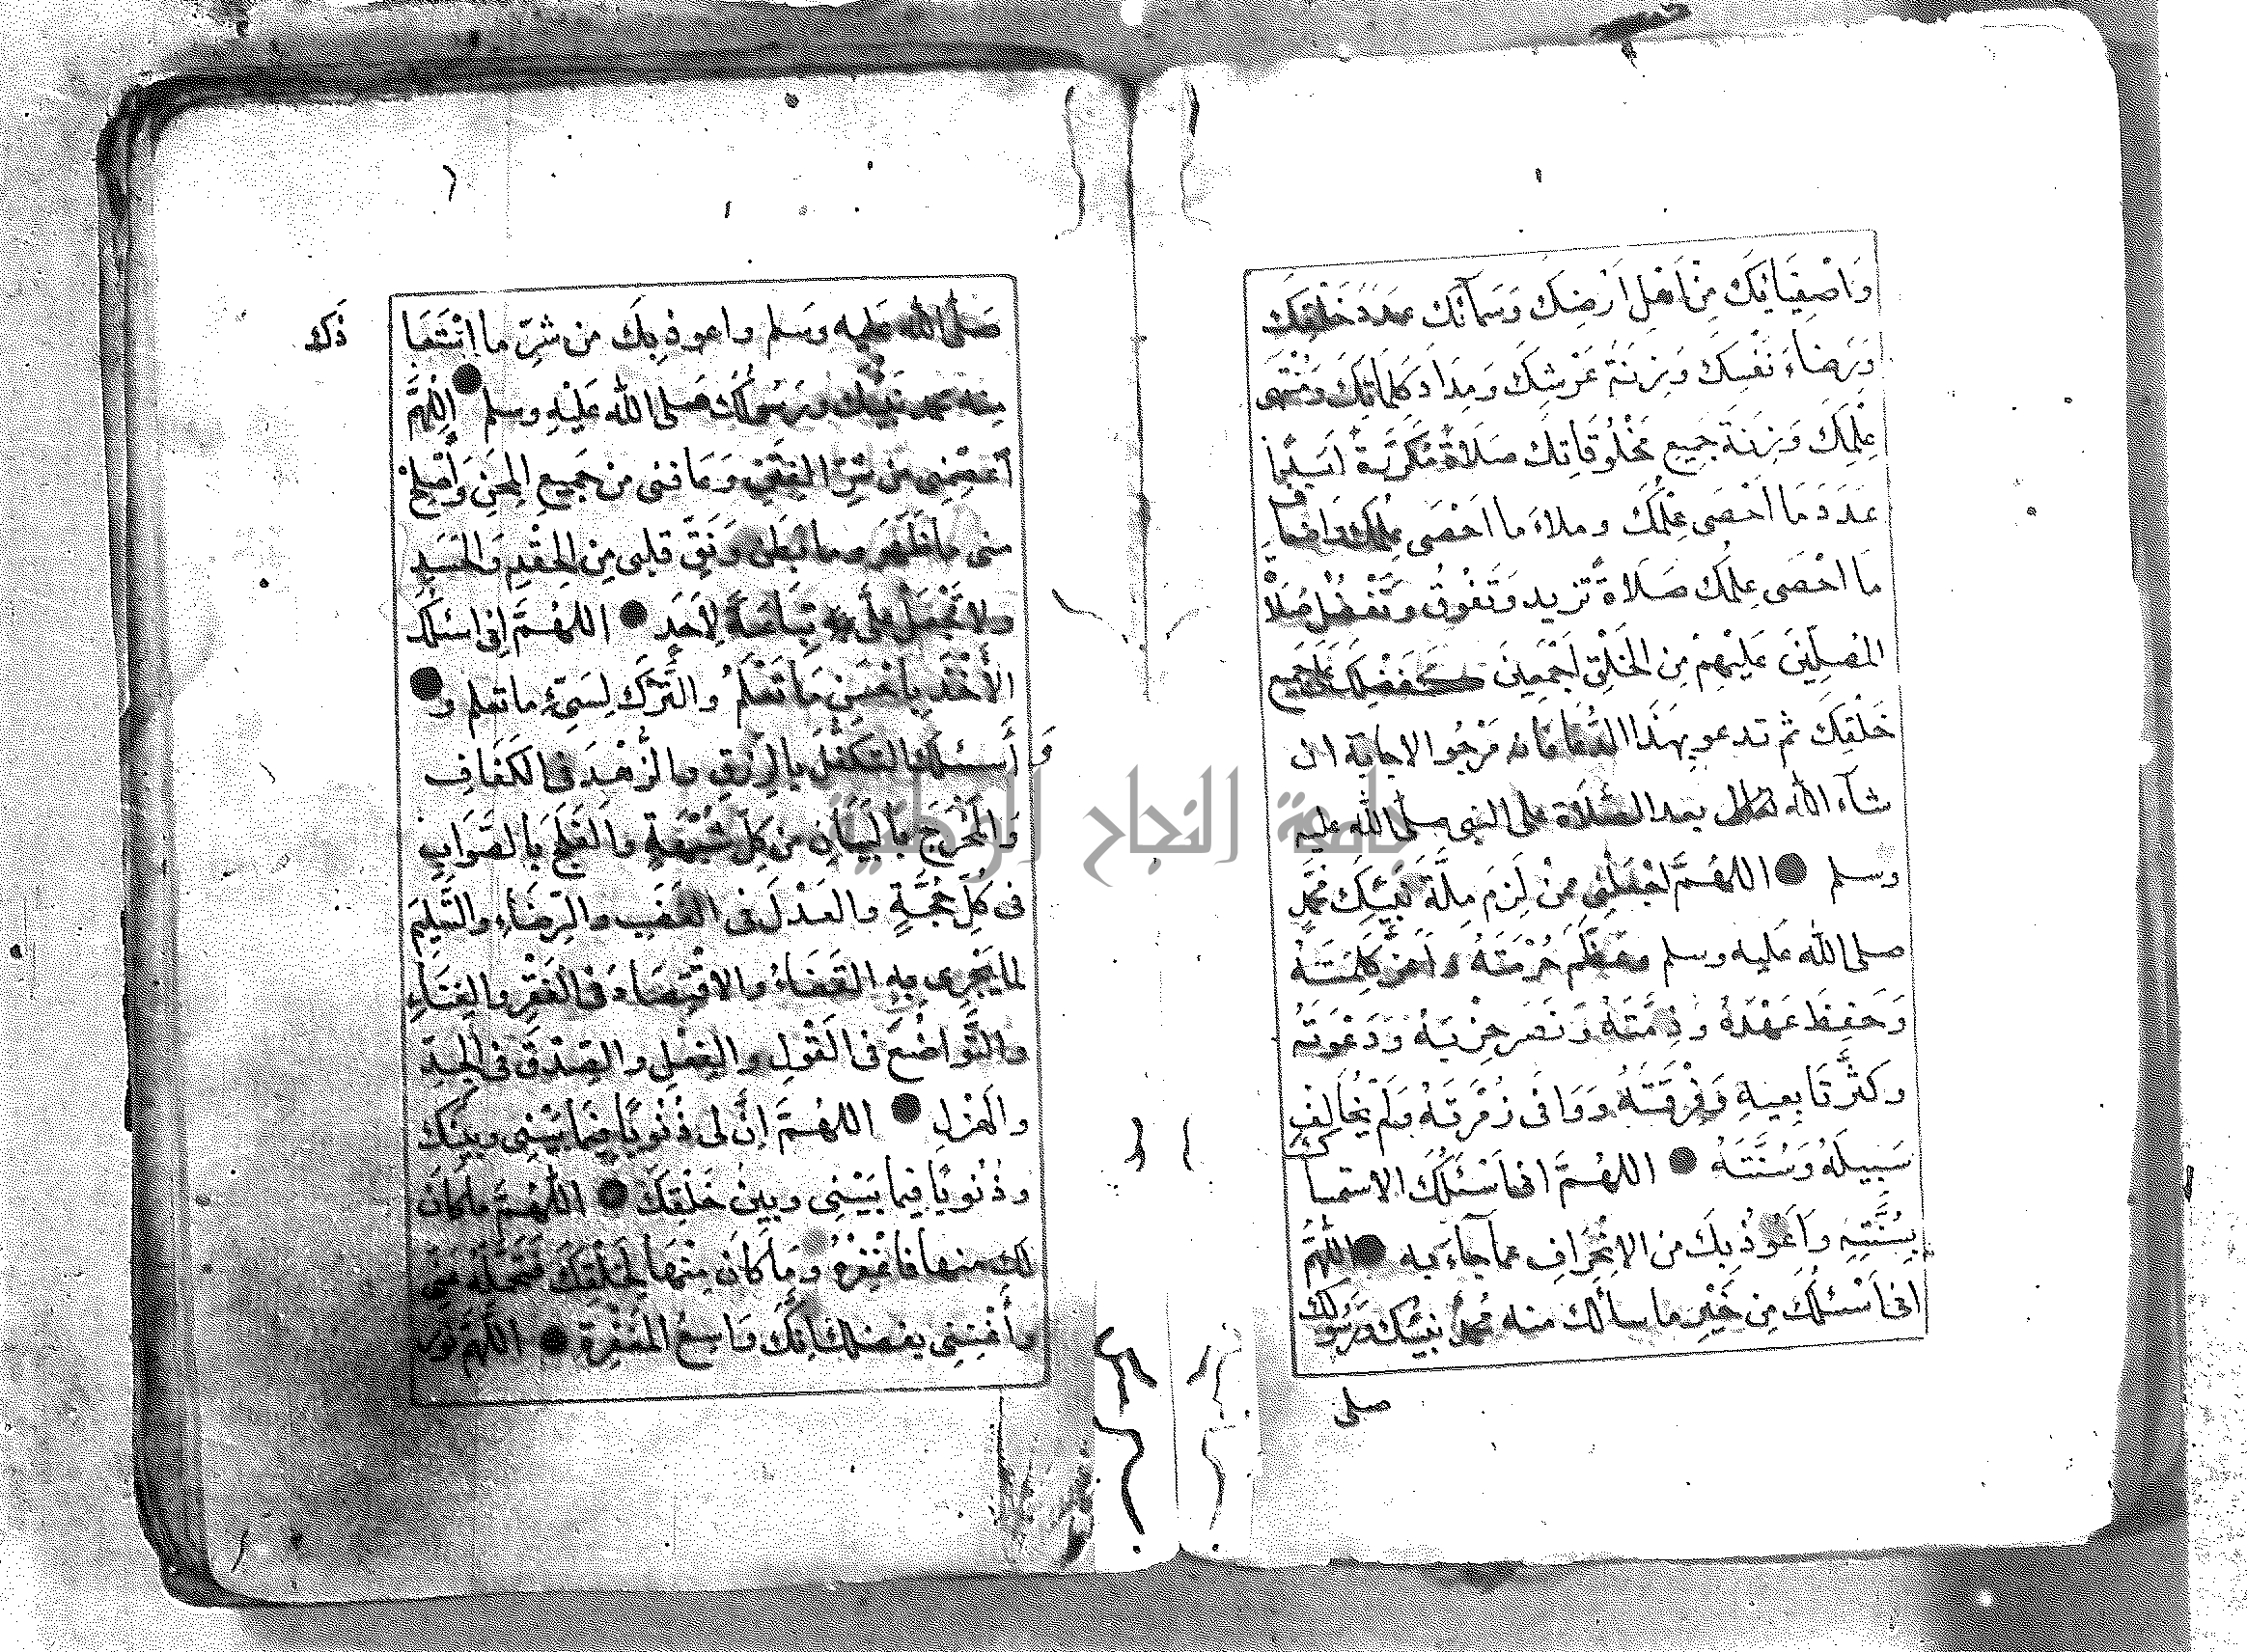 وَاَصْفِيَائِكَ مِنْ اَهْلِ اَرْضِكَ وَسَمَآئِكَ عَدَدَ خَلْقِكَ
وَرِضَاءَ نَفْسِكَ وَزِنَةَ عَرْشِكَ وَمِدَادَ كَلِمَاتِكَ وَمُنْتَهَى
عِلْمِكَ وَزِنَةَ جَمِيعِ مَخْلُوقَاتِكَ صَلَاةً مُكَرَّرَةً اَبَدًا
عَدَدَ مَا اَحْصَى عِلْمُكَ وملاءَ ما اَحْصَى عِلْمُكَ وَاضعاف
مَا احْصَى عِلمُكَ صَلَاةً تَزِيدُ وَتَفُوقُ وَتَفْضُلُ صَلَاةَ
المُصَلِّينَ عَلَيْهِمْ مِنَ الْخَلْقِ اَجْمَعِينَ كَفَضْلِكَ عَلَى جَمِيعِ
خَلْقِكَ ثم تدعو بِهَذَا الدُّعَا فانه مَرْجُو الاجابة ان
شآء الله تعالى بعد الصَّلَاة على النبي صلى الله عليه
وسلم اللهُمَّ اجْعَلْنِي مِمَّنْ لَزِمَ مِلَّةَ نَبِيِّكَ مُحَمَّدٍ
صلى الله عَليه وسلم وَعَظَّمَ حُرْمَتَهُ وَاَعَزَّ كَلِمَتَهُ
وَحَفِظَ عَهْدَهُ وَذِمَّتَهُ وَنَصَرَ حِزْبَهُ وَدَعْوَتَهُ
وكَثَّرَ تَابِعِيهِ وَفِرْقَتَهُ وَوَافَى زُمْرَتَهُ وَلَمْ يُخَالِفْ
سَبِيلَهُ وَسُنَّتَهُ اللهُمَّ انى اَسْئَلُكَ الاستمساك
بِسُنَّتِهِ وَاَعُوذُ بِكَ مِنَ الاِنْحِرَافِ عمآ جَآءَ به اللهُمَّ
انى اَسْئَلُكَ مِن خَيْرِ ما سألك منه محمد نبيّك وَرَسُولك
صلى
صَلَّى الله عَليه وسَلم واعوذ بِكَ من شَرِّ ما اسْتَعَا
ذَك
منه محمد نَبِيُّكَ وَرَسُولُكَ صَلى الله عَلَيْهِ وسلم اللهُمَّ
اعْصِمْنِي مِن شَرِّ الفِتَنِ وَعَافنى من جَمِيعِ المِحَنِ وَأَصْلِحْ
منى مَا ظَهَرَ وما بَطَنَ وَنَقِّ قلبى مِنَ الحِقْدِ وَالحَسَدِ
ولا تَجْعَلْ عَلَىَّ تِبَاعَةً لِاَحَدٍ اللهُمَّ اِنِّى اسئَلكَ
الأَخْذَ بِاَحْسَنِ مَا تَعْلَمُ والتَّرْكَ لِسَيِّئِ ما تعلم و
وَأَسئلكَ التَكَفُّلَ بِالرِّزقِ والزُّهْدَ فى الكَفَافِ
وَالمَخْرَجَ بِالبَيَانِ من كُلِّ شُبْهَةٍ والفَلَجَ بِالصَّوَابِ
فى كُلِّ حُجَّةٍ والعَدْلَ فى الغَضَبِ والرِّضَاءِ والتَّسْلِيمَ
لما يَجْرِى بِهِ القَضَاءُ والاقْتِصَادَ فى الفَقْرِ والغِنَاءِ
والتَّوَاضُعَ فى القَوْلِ والفِعْلِ والصِّدْقَ فى الجِدِّ
والهَزْلِ اللهُمَّ اِنَّ لى ذُنُوبًا فِيمَا بَيْنِى وبينك
وذُنُوبًا فيما بَيْنِى وبينَ خَلْقِكَ اللهُمَّ ما كان
لك منها فاغْفِرْهُ وَمَا كَانَ مِنْهَا لِخَلْقِكَ فَتَحَمَّلْهُ عَنّى
وأَغْنِنِى بِفَضلك اِنَّكَ وَاسِعُ المَغْفِرَةِ اللّهُمَّ نور
جامعة النجاح الوطنية